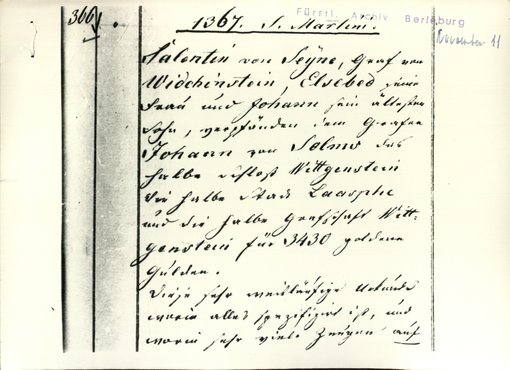 366
1367. S. Martini.
Fürstl. Archiv Berleburg
November 11
Salentin von Seyne, Graf von
Widchinstein, Elsebed seine
Frau und Johann sein ältester
Sohn, verpfänden dem Grafen
Johann von Solms das
halbe Schloß Wittgenstein
die halbe Stadt Laasphe
und die halbe Grafschaft Witt-
genstein für 3430 goldene
Gülden.
Diese sehr weitläufige Urkunde
worin alles spezifizirt ist, und
worin sehr viele Zeugen auf